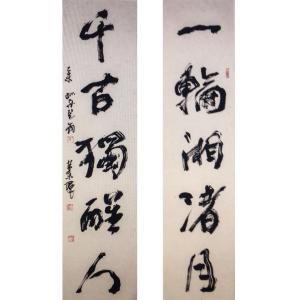 一輪湘渚月
千古獨醒人